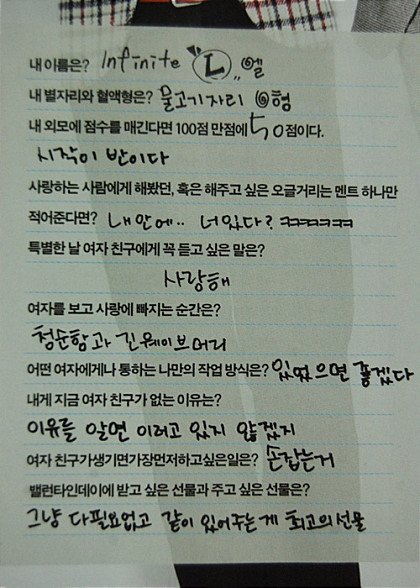 내 이름은? Infinite "L" 엘
내 별자리와 혈액형은? 물고기자리 O형
내 외모에 점수를 매긴다면 100점 만점에 50점이다.
시작이 반이다
사랑하는 사람에게 해봤던, 혹은 해주고 싶은 오글거리는 멘트 하나만
적어준다면? 내안에.. 너있다? ㅋㅋㅋㅋㅋ
특별한 날 여자 친구에게 꼭 듣고 싶은 말은?
사랑해
여자를 보고 사랑에 빠지는 순간은?
청순함과 긴웨이브머리
어떤 여자에게나 통하는 나만의 작업 방식은? 있었으면 좋겠다
내게 지금 여자 친구가 없는 이유는?
이유를 알면 이러고 있지 않겠지
여자 친구가생기면가장먼저하고싶은일은? 손잡는거
밸런타인데이에 받고 싶은 선물과 주고 싶은 선물은?
그냥 다필요없고 같이 있어주는게 최고의선물